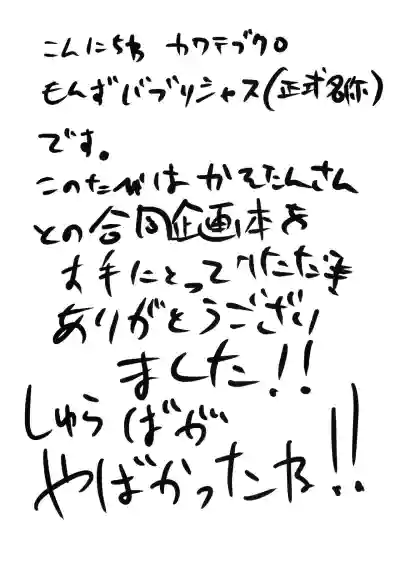 こんにちわ カワテブクロ
もんずパブリシャス(正式名称)
です。
このたびは かそたんさん
との合同企画本お
お手にとっていただき
ありがとうござい
ました!!
しゅらばが
やばかったね!!